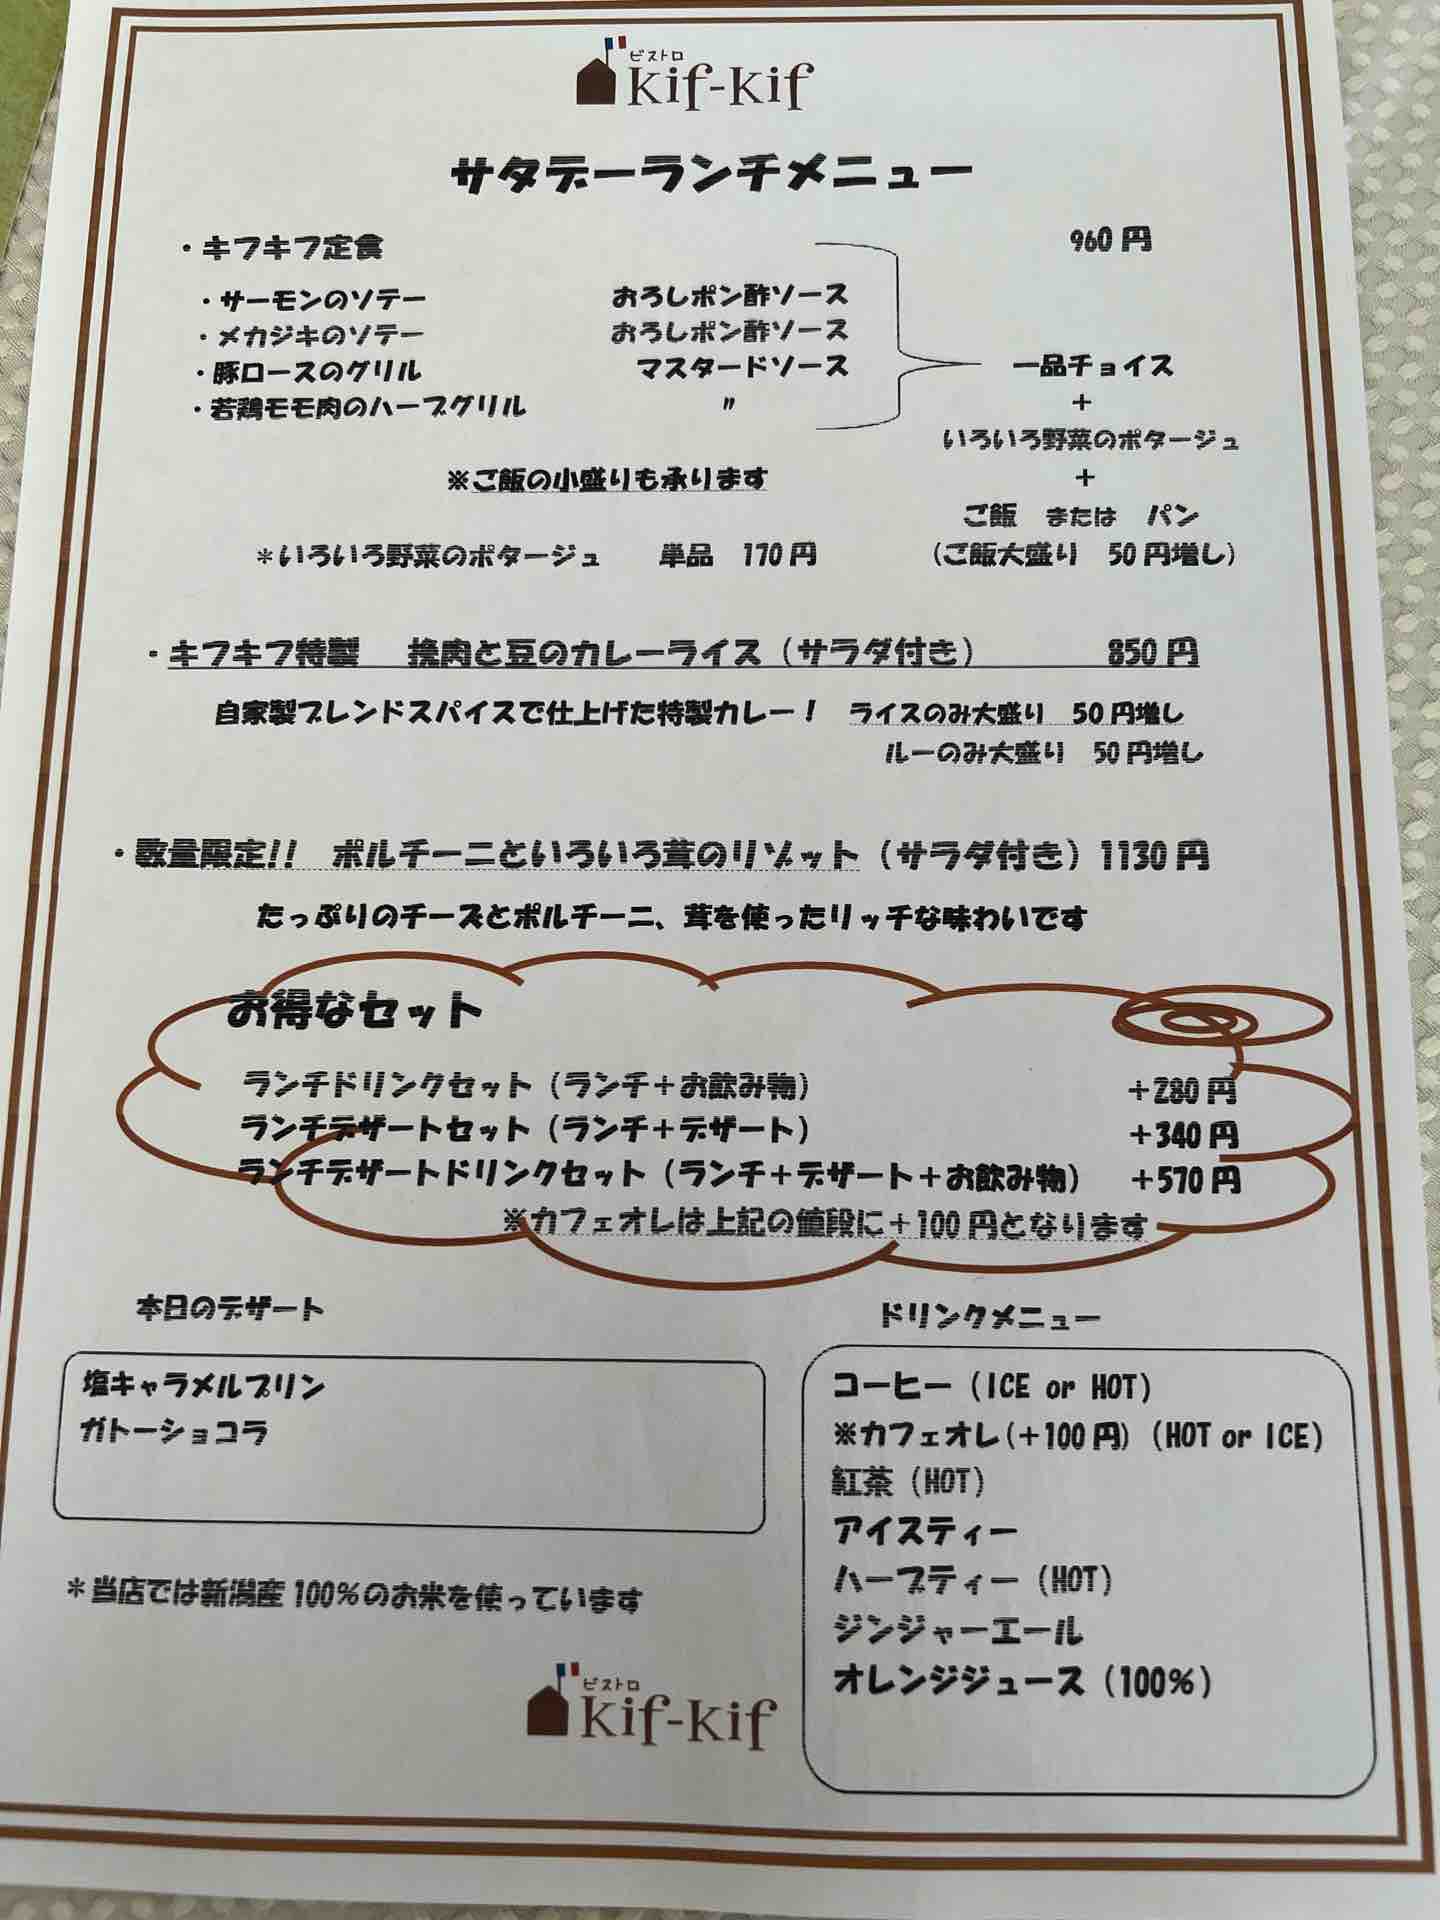 ビストロ
kif-kif
サタデーランチメニュー
・キフキフ定食 960円
・サーモンのソテー おろしポン酢ソース
・メカジキのソテー おろしポン酢ソース
・豚ロースのグリル マスタードソース 一品チョイス
・若鶏モモ肉のハーブグリル 〃 +
いろいろ野菜のポタージュ
※ご飯の小盛りも承ります +
ご飯 または パン
*いろいろ野菜のポタージュ 単品 170円 (ご飯大盛り 50円増し)
・キフキフ特製 挽肉と豆のカレーライス（サラダ付き） 850円
自家製ブレンドスパイスで仕上げた特製カレー！ ライスのみ大盛り 50円増し
ルーのみ大盛り 50円増し
・数量限定!! ポルチーニといろいろ茸のリゾット（サラダ付き）1130円
たっぷりのチーズとポルチーニ、茸を使ったリッチな味わいです
お得なセット
ランチドリンクセット（ランチ＋お飲み物） ＋280円
ランチデザートセット（ランチ＋デザート） ＋340円
ランチデザートドリンクセット（ランチ＋デザート＋お飲み物） ＋570円
※カフェオレは上記の値段に＋100円となります
本日のデザート
塩キャラメルプリン
ガトーショコラ
*当店では新潟産100%のお米を使っています
ドリンクメニュー
コーヒー（ICE or HOT）
※カフェオレ(＋100円)（HOT or ICE）
紅茶（HOT）
アイスティー
ハーブティー（HOT）
ジンジャーエール
オレンジジュース（100%）
ビストロ
kif-kif